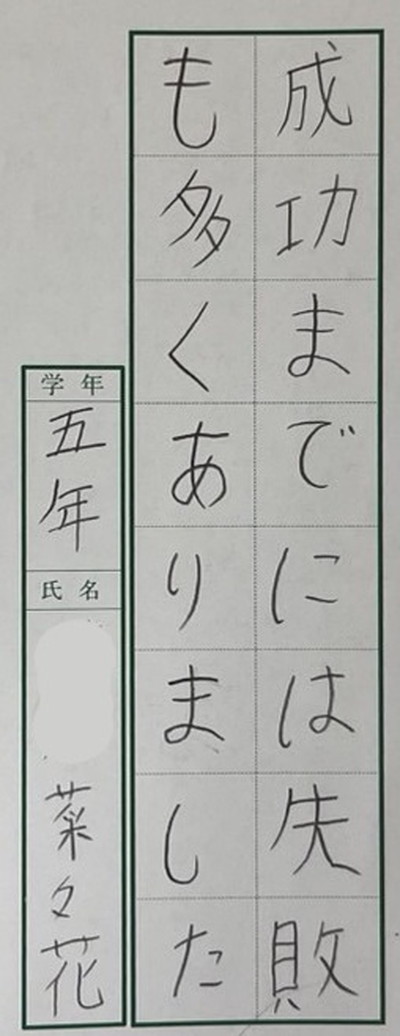 成功までには失敗
も多くありました
学年
五年
氏名
菜々花